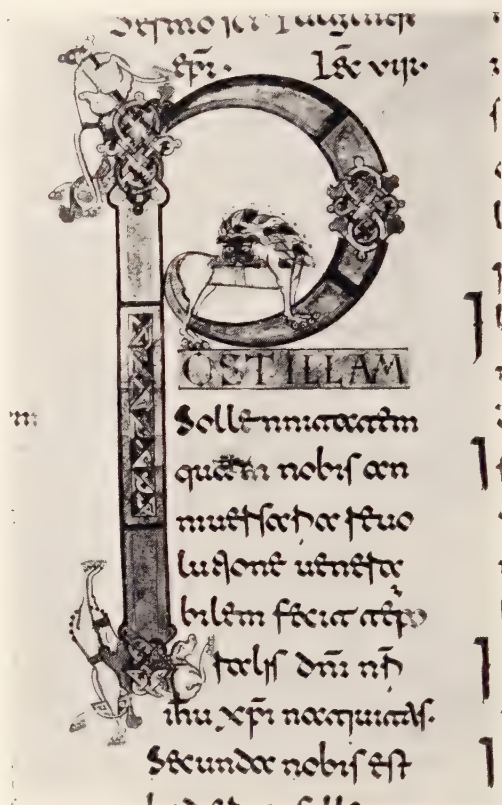 Sermo sci Augustini
epi. Lec viii.
POSTILLAM
Sollemnitatem
quam nobis an
niuersaria reuo
lutione uenera
bilem fecit tēpo
ralis dn̄i nr̄i
ih̄u xp̄i natiuitas.
Secunda nobis est